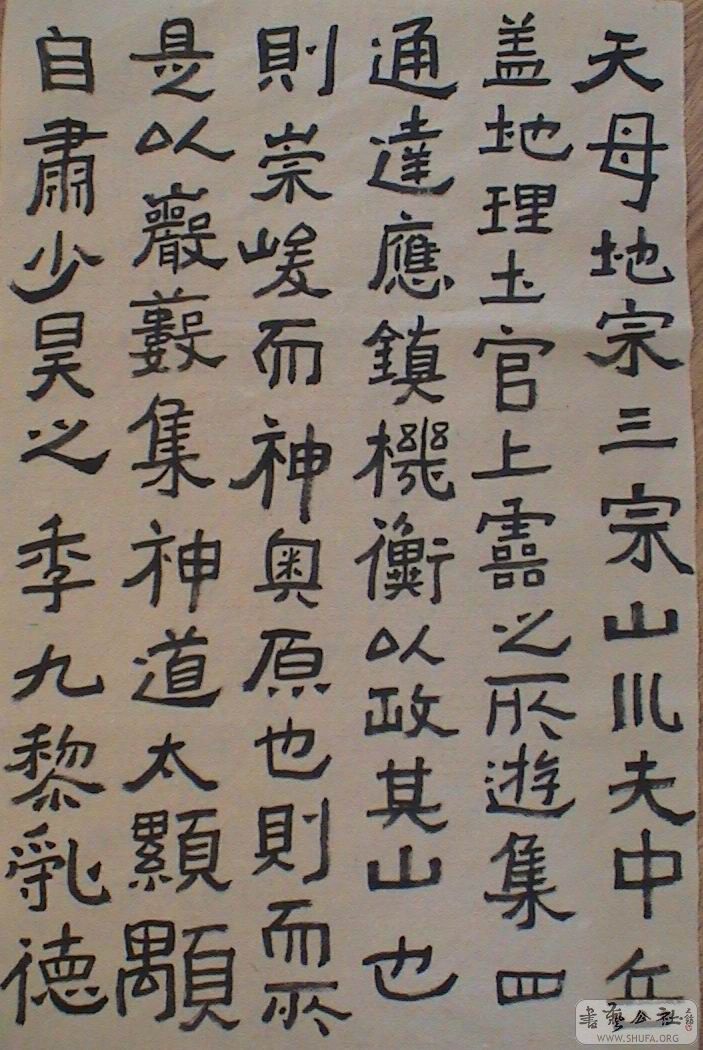 天母地宗三宗山川夫中丘
盖地理土官上靈之所遊集四
通達應鎮機衡以政其山也
則崇峻而神奥原也則而所
是以巖藪集神道太顒
自肅少昊之季九黎亂德
書藝公社
WWW.SHUFA.ORG